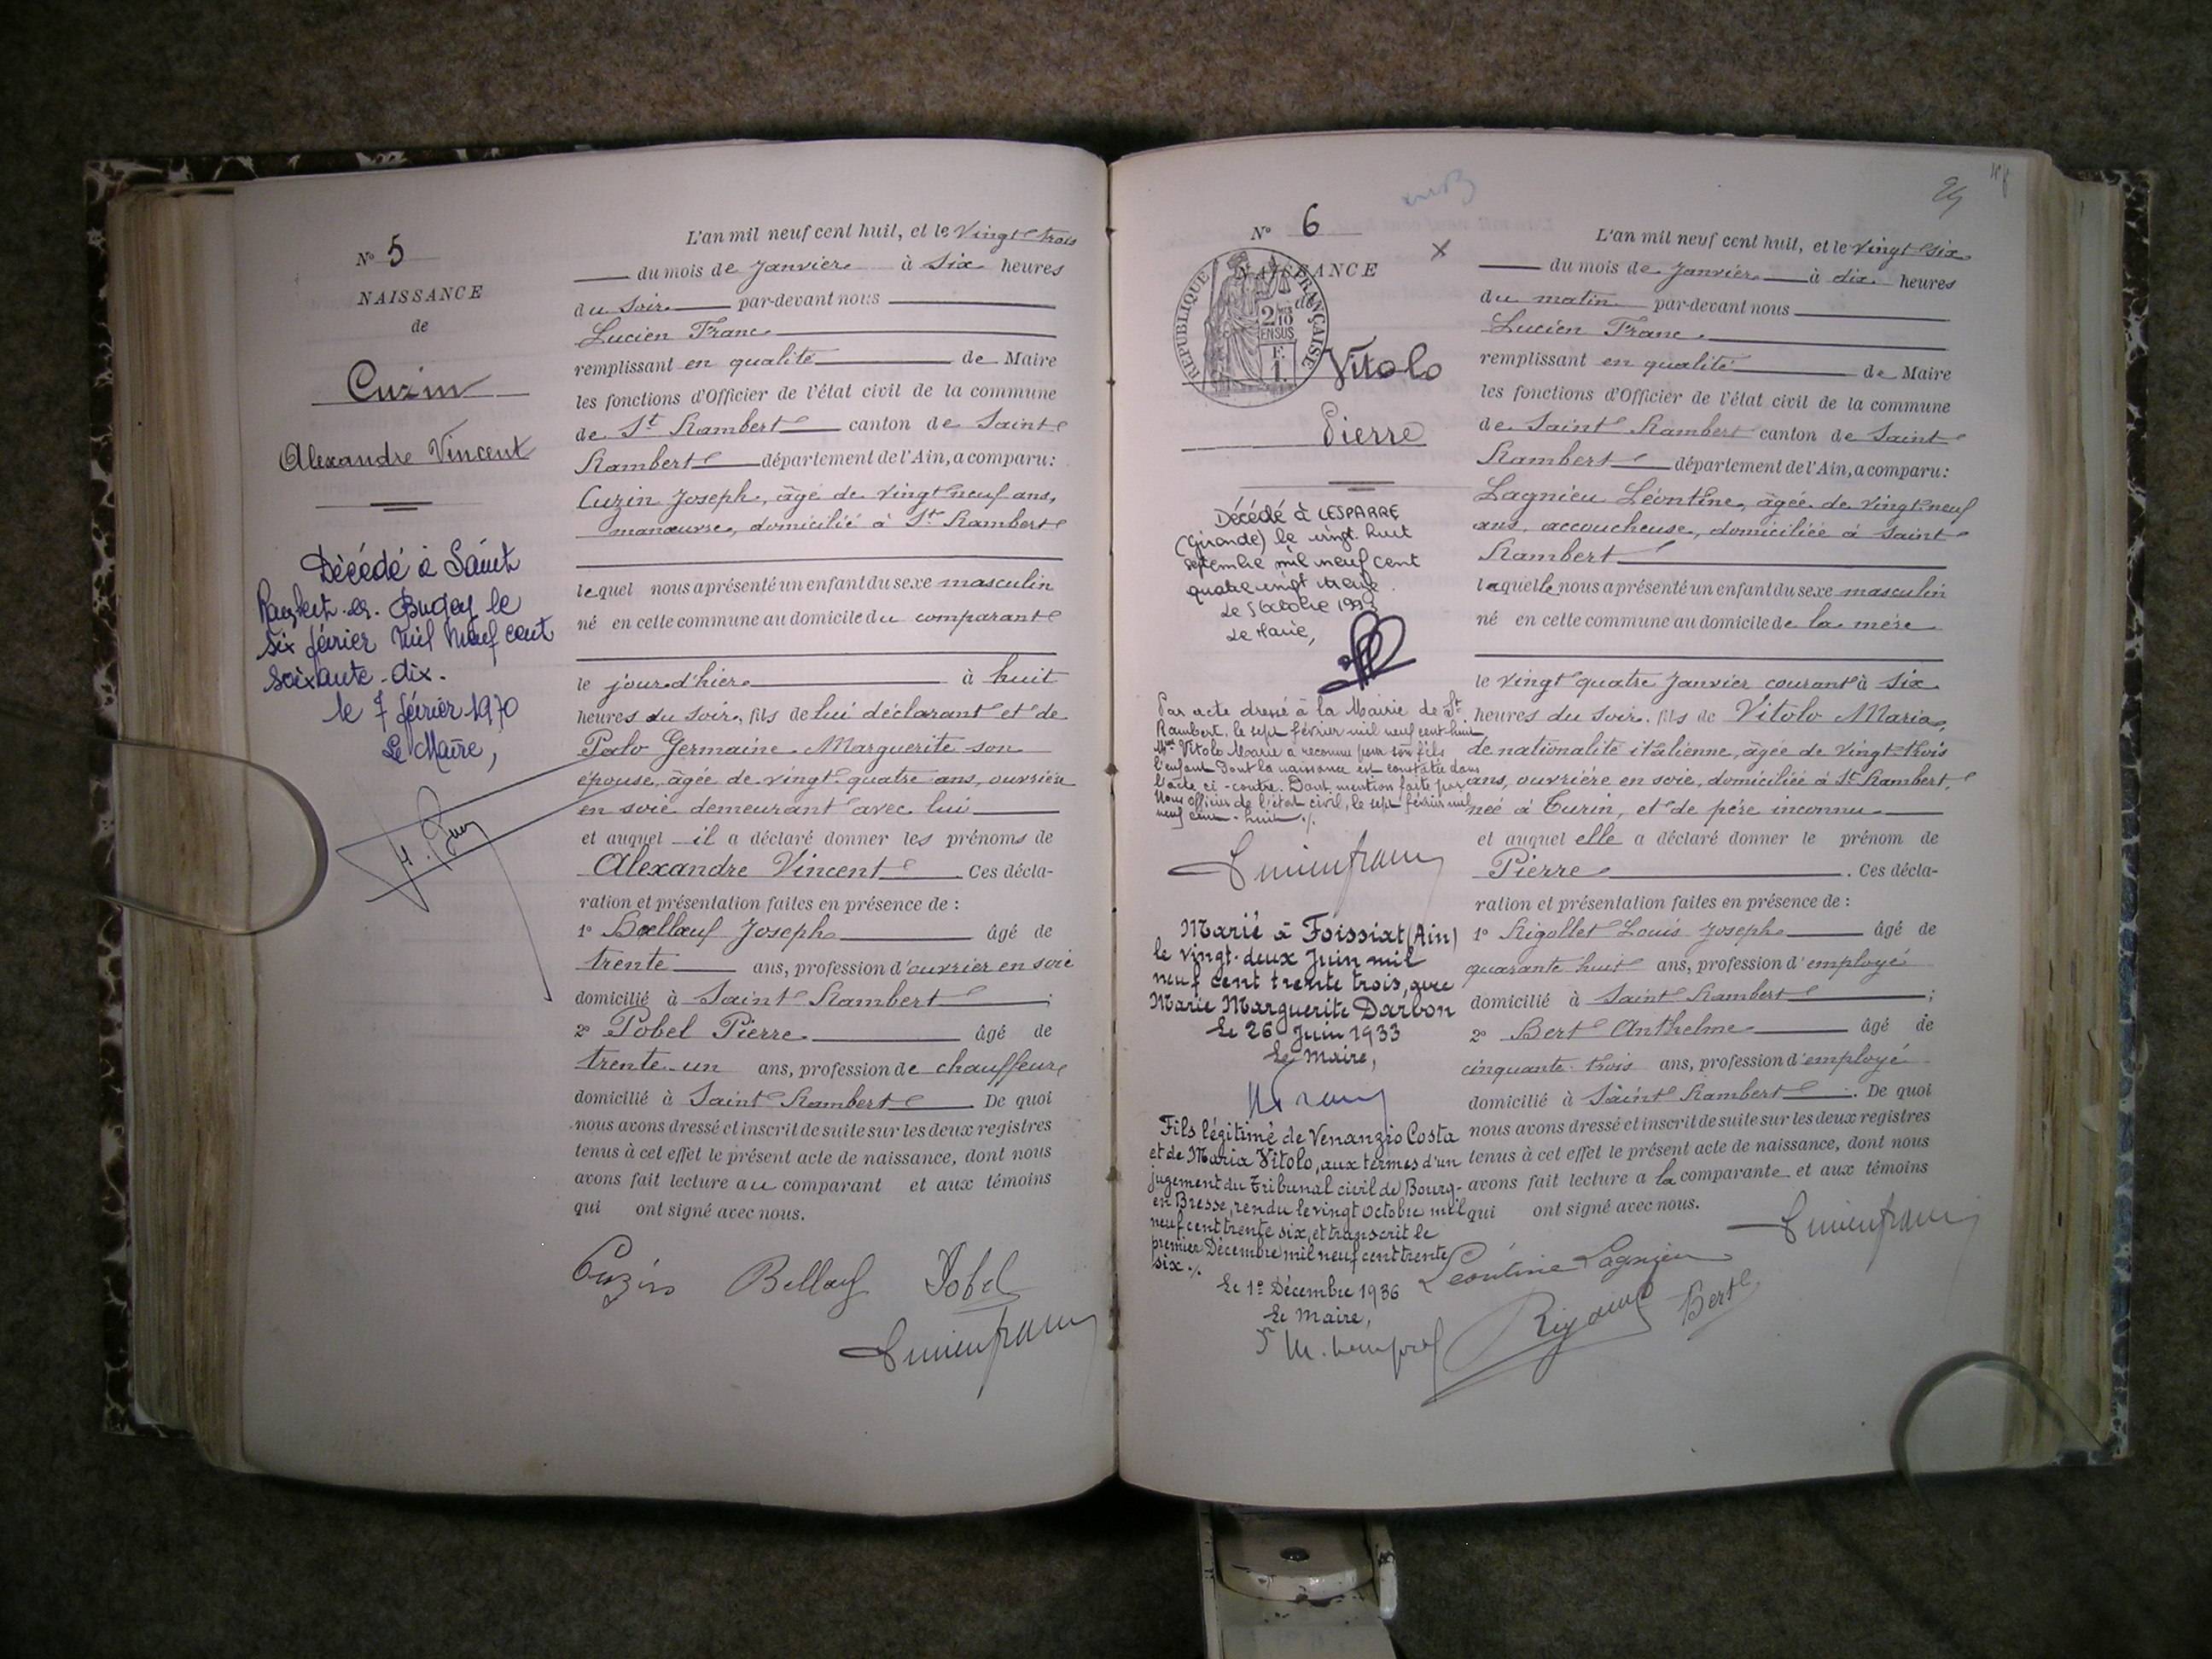 N° 5
NAISSANCE
de
Cuzin
Alexandre Vincent
Décédé à Saint
Rambert-en-Bugey le
six février mil neuf cent
soixante-dix.
le 7 février 1970
Le Maire,
L'an mil neuf cent huit, et le vingt trois
du mois de Janvier à six heures
du soir par-devant nous
Lucien Franc
remplissant en qualité de Maire
les fonctions d'Officier de l'état civil de la commune
de St Rambert canton de Saint
Rambert département de l'Ain, a comparu:
Cuzin Joseph, âgé de vingt neuf ans,
manœuvre, domicilié à St Rambert
lequel nous a présenté un enfant du sexe masculin
né en cette commune au domicile du comparant
le jour d'hier à huit
heures du soir, fils de lui déclarant et de
Polo Germaine Marguerite son
épouse, âgée de vingt quatre ans, ouvrière
en soie demeurant avec lui
et auquel il a déclaré donner les prénoms de
Alexandre Vincent. Ces décla-
ration et présentation faites en présence de :
1° Joseph âgé de
trente ans, profession d'ouvrier en soie
domicilié à Saint Rambert ;
2° Pobel Pierre âgé de
trente un ans, profession de chauffeur
domicilié à Saint Rambert. De quoi
nous avons dressé et inscrit de suite sur les deux registres
tenus à cet effet le présent acte de naissance, dont nous
avons fait lecture au comparant et aux témoins
qui ont signé avec nous.
Cuzin Pobel
Lucien Franc
24
N° 6
NAISSANCE
de
RÉPUBLIQUE FRANÇAISE
2/10
EN SUS
F.
1.
Vitolo
Pierre
Décédé à LESPARRE
(Gironde) le vingt huit
septembre mil neuf cent
quatre vingt treize.
Le 5 Octobre 1993
Le Maire,
Par acte dressé à la Mairie de St
Rambert, le sept février mil neuf cent huit
Vitolo Marie a reconnu pour son fils
l'enfant dont la naissance est constatée dans
l'acte ci-contre. Dont mention faite par
Nous officier de l'état civil, le sept février mil
neuf cent huit ./.
Lucien Franc
Marié à Foissiat (Ain)
le vingt-deux Juin mil
neuf cent trente trois, avec
Marie Marguerite Darbon
Le 26 Juin 1933
Le Maire,
Fils légitimé de Venanzio Costa
et de Maria Vitolo, aux termes d'un
jugement du Tribunal civil de Bourg-
en Bresse, rendu le vingt octobre mil
neuf cent trente six, et transcrit le
premier Décembre mil neuf cent trente
six ./.
Le 1er Décembre 1936
Le Maire,
L'an mil neuf cent huit, et le vingt six
du mois de Janvier à dix heures
du matin par-devant nous
Lucien Franc
remplissant en qualité de Maire
les fonctions d'Officier de l'état civil de la commune
de Saint Rambert canton de Saint
Rambert département de l'Ain, a comparu:
Lagnieu Léontine, âgée de vingt-neuf
ans, accoucheuse, domiciliée à Saint
Rambert
laquelle nous a présenté un enfant du sexe masculin
né en cette commune au domicile de la mère
le vingt quatre Janvier courant à six
heures du soir, fils de Vitolo Maria,
de nationalité italienne, âgée de vingt-trois
ans, ouvrière en soie, domiciliée à St Rambert,
neé à Turin, et de père inconnu
et auquel elle a déclaré donner le prénom de
Pierre. Ces décla-
ration et présentation faites en présence de :
1° Rigollet Louis Joseph âgé de
quarante huit ans, profession d'employé
domicilié à Saint Rambert ;
2° Bert Anthelme âgé de
cinquante trois ans, profession d'employé
domicilié à Saint Rambert. De quoi
nous avons dressé et inscrit de suite sur les deux registres
tenus à cet effet le présent acte de naissance, dont nous
avons fait lecture a la comparante et aux témoins
qui ont signé avec nous.
Lucien Franc
Léontine Lagnieu
Bert